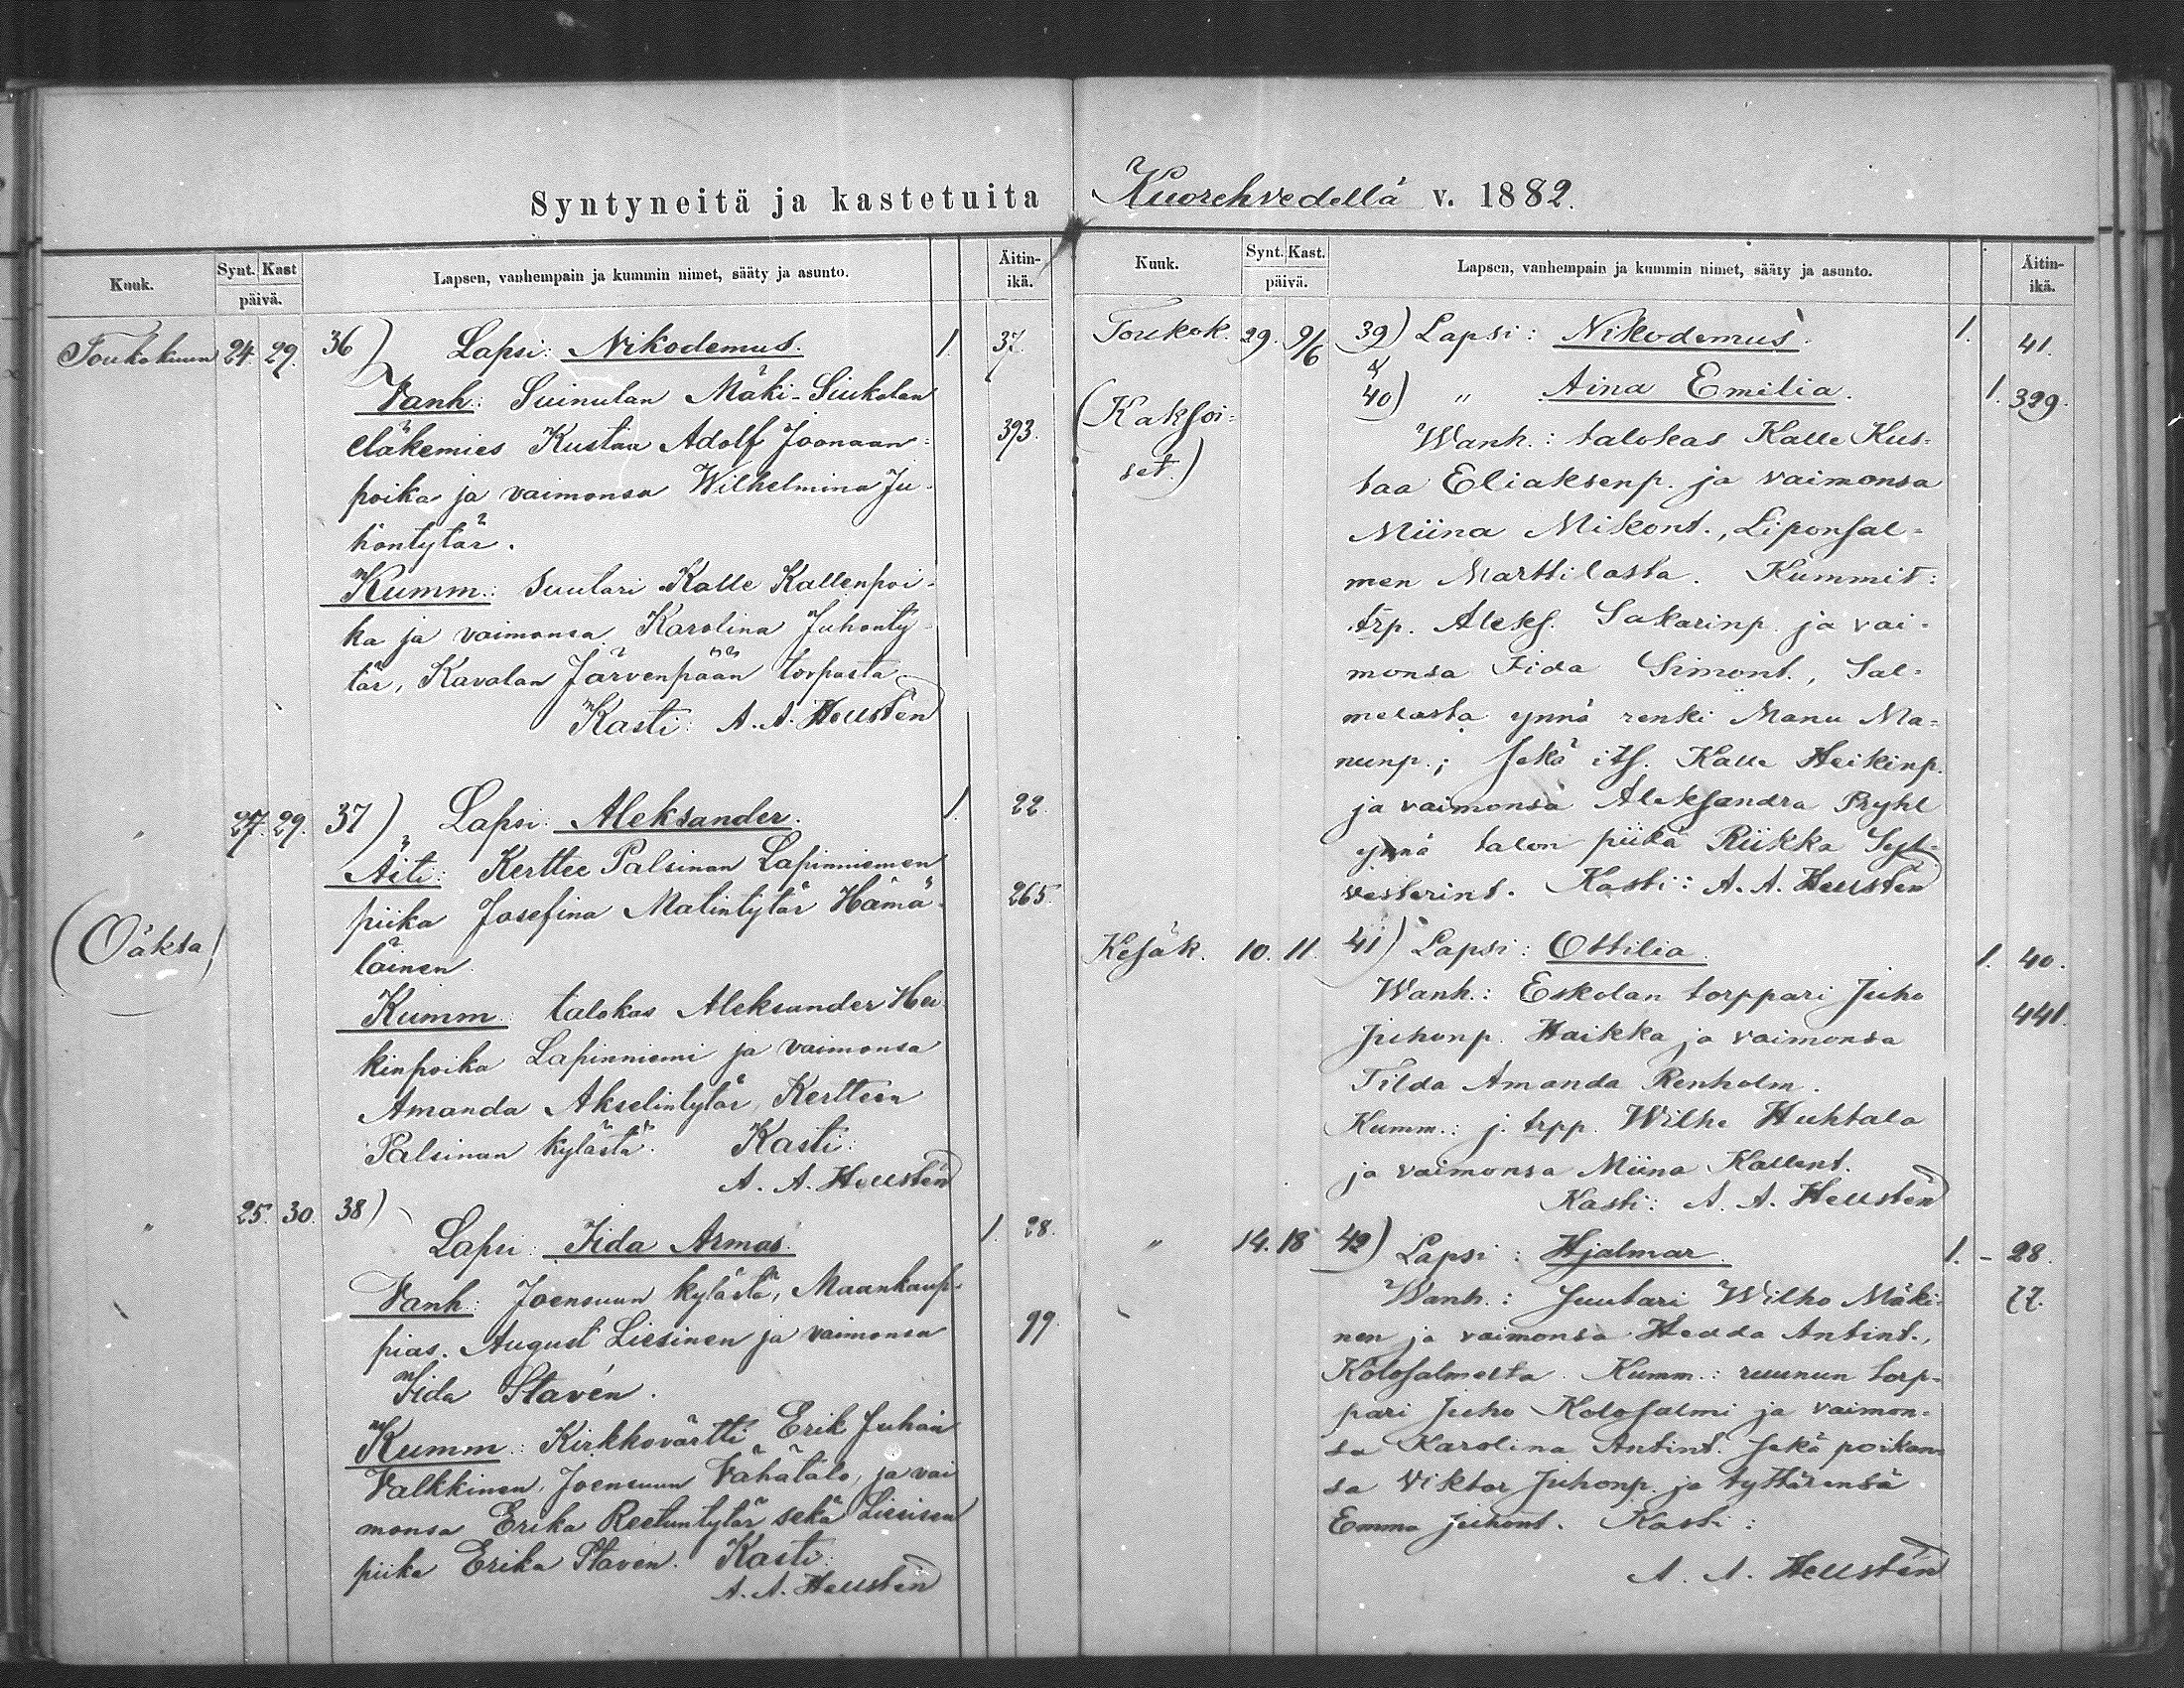 Syntyneitä ja kastetuita Kuorehvedellä v. 1882.
Kuuk. Synt. Kast Lapsen, vanhempain ja kummin nimet, sääty ja asunto. Äitin-
päivä. ikä.
Toukokuun 24. 29. 36) Lapsi: Nikodemus. 1. 37.
Vanh: Suinulan Mäki-Siukolan
eläkemies Kustaa Adolf Joonaan- 393.
poika ja vaimonsa Wilhelmina Ju-
hontytär.
Kumm: Suutari Kalle Kallenpoi-
ka ja vaimonsa Karolina Juhonty-
tär, Kavalan Järvenpään torpasta.
Kasti: A. A. Hellstén
" 27. 29. 37) Lapsi: Aleksander. 1. 22.
Äiti: Kerttee Palsinan Lapinniemen
piika Josefina Matintytär Hämä- 265.
(Oäkta) läinen.
Kumm: talokas Aleksander Hei-
kinpoika Lapinniemi ja vaimonsa
Amanda Akselintytär, Kertteen
Palsinan kylästä. Kasti:
A. A. Hellstén
" 25. 30. 38)
Lapsi: Iida Armas. 1. 28.
Vanh: Joensuun kylästä, Maankaup-
pias. August Liesinen ja vaimonsa 99.
Iida Stavén.
Kumm: Kirkkovärtti Erik Juhan
Valkkinen, Joensuun Vähätalo, ja vai
monsa Erika Reetuntytär sekä Liesisen
piika Erika Stavén. Kasti:
A. A. Hellstén
Kuuk. Synt. Kast. Lapsen, vanhempain ja kummin nimet, sääty ja asunto. Äitin-
päivä. ikä.
Toukok. 29. 9/6 39) Lapsi: Nikodemus. 1. 41.
&
(Kaksoi- 40) " Aina Emilia. 1. 329.
set.) Wanh.: talokas Kalle Kus-
taa Eliaksenp. ja vaimonsa
Miina Mikont., Liponsal-
men Marttilasta. Kummit:
trp. Aleks. Sakarinp. ja vai-
monsa Iida Simont., Sal-
melasta ynnä renki Manu Ma-
nunp.; sekä its. Kalle Heikinp.
ja vaimonsa Aleksandra Pryhl
ynnä talon piika Riikka Syl-
vesterint. Kasti: A. A. Hellstén
Kesäk. 10. 11. 41) Lapsi: Ottilia. 1. 40.
Wanh.: Eskolan torppari Juho 441.
Juhonp. Haikka ja vaimonsa
Tilda Amanda Renholm.
Kumm.: j. trpp. Wilhe Huhtala
ja vaimonsa Miina Kallent.
Kasti: A. A. Hellstén
" 14. 18 42) Lapsi: Hjalmar. 1. - 28.
Wanh.: Suutari Wilho Mäki- 77.
nen ja vaimonsa Hedda Antint.,
Kolosalmelta. Kumm.: ruunun torp-
pari Juho Kolosalmi ja vaimon-
sa Karolina Antint. sekä poikan-
sa Viktor Juhonp. ja tyttärensä
Emma Juhont. Kasti:
A. A. Hellstén